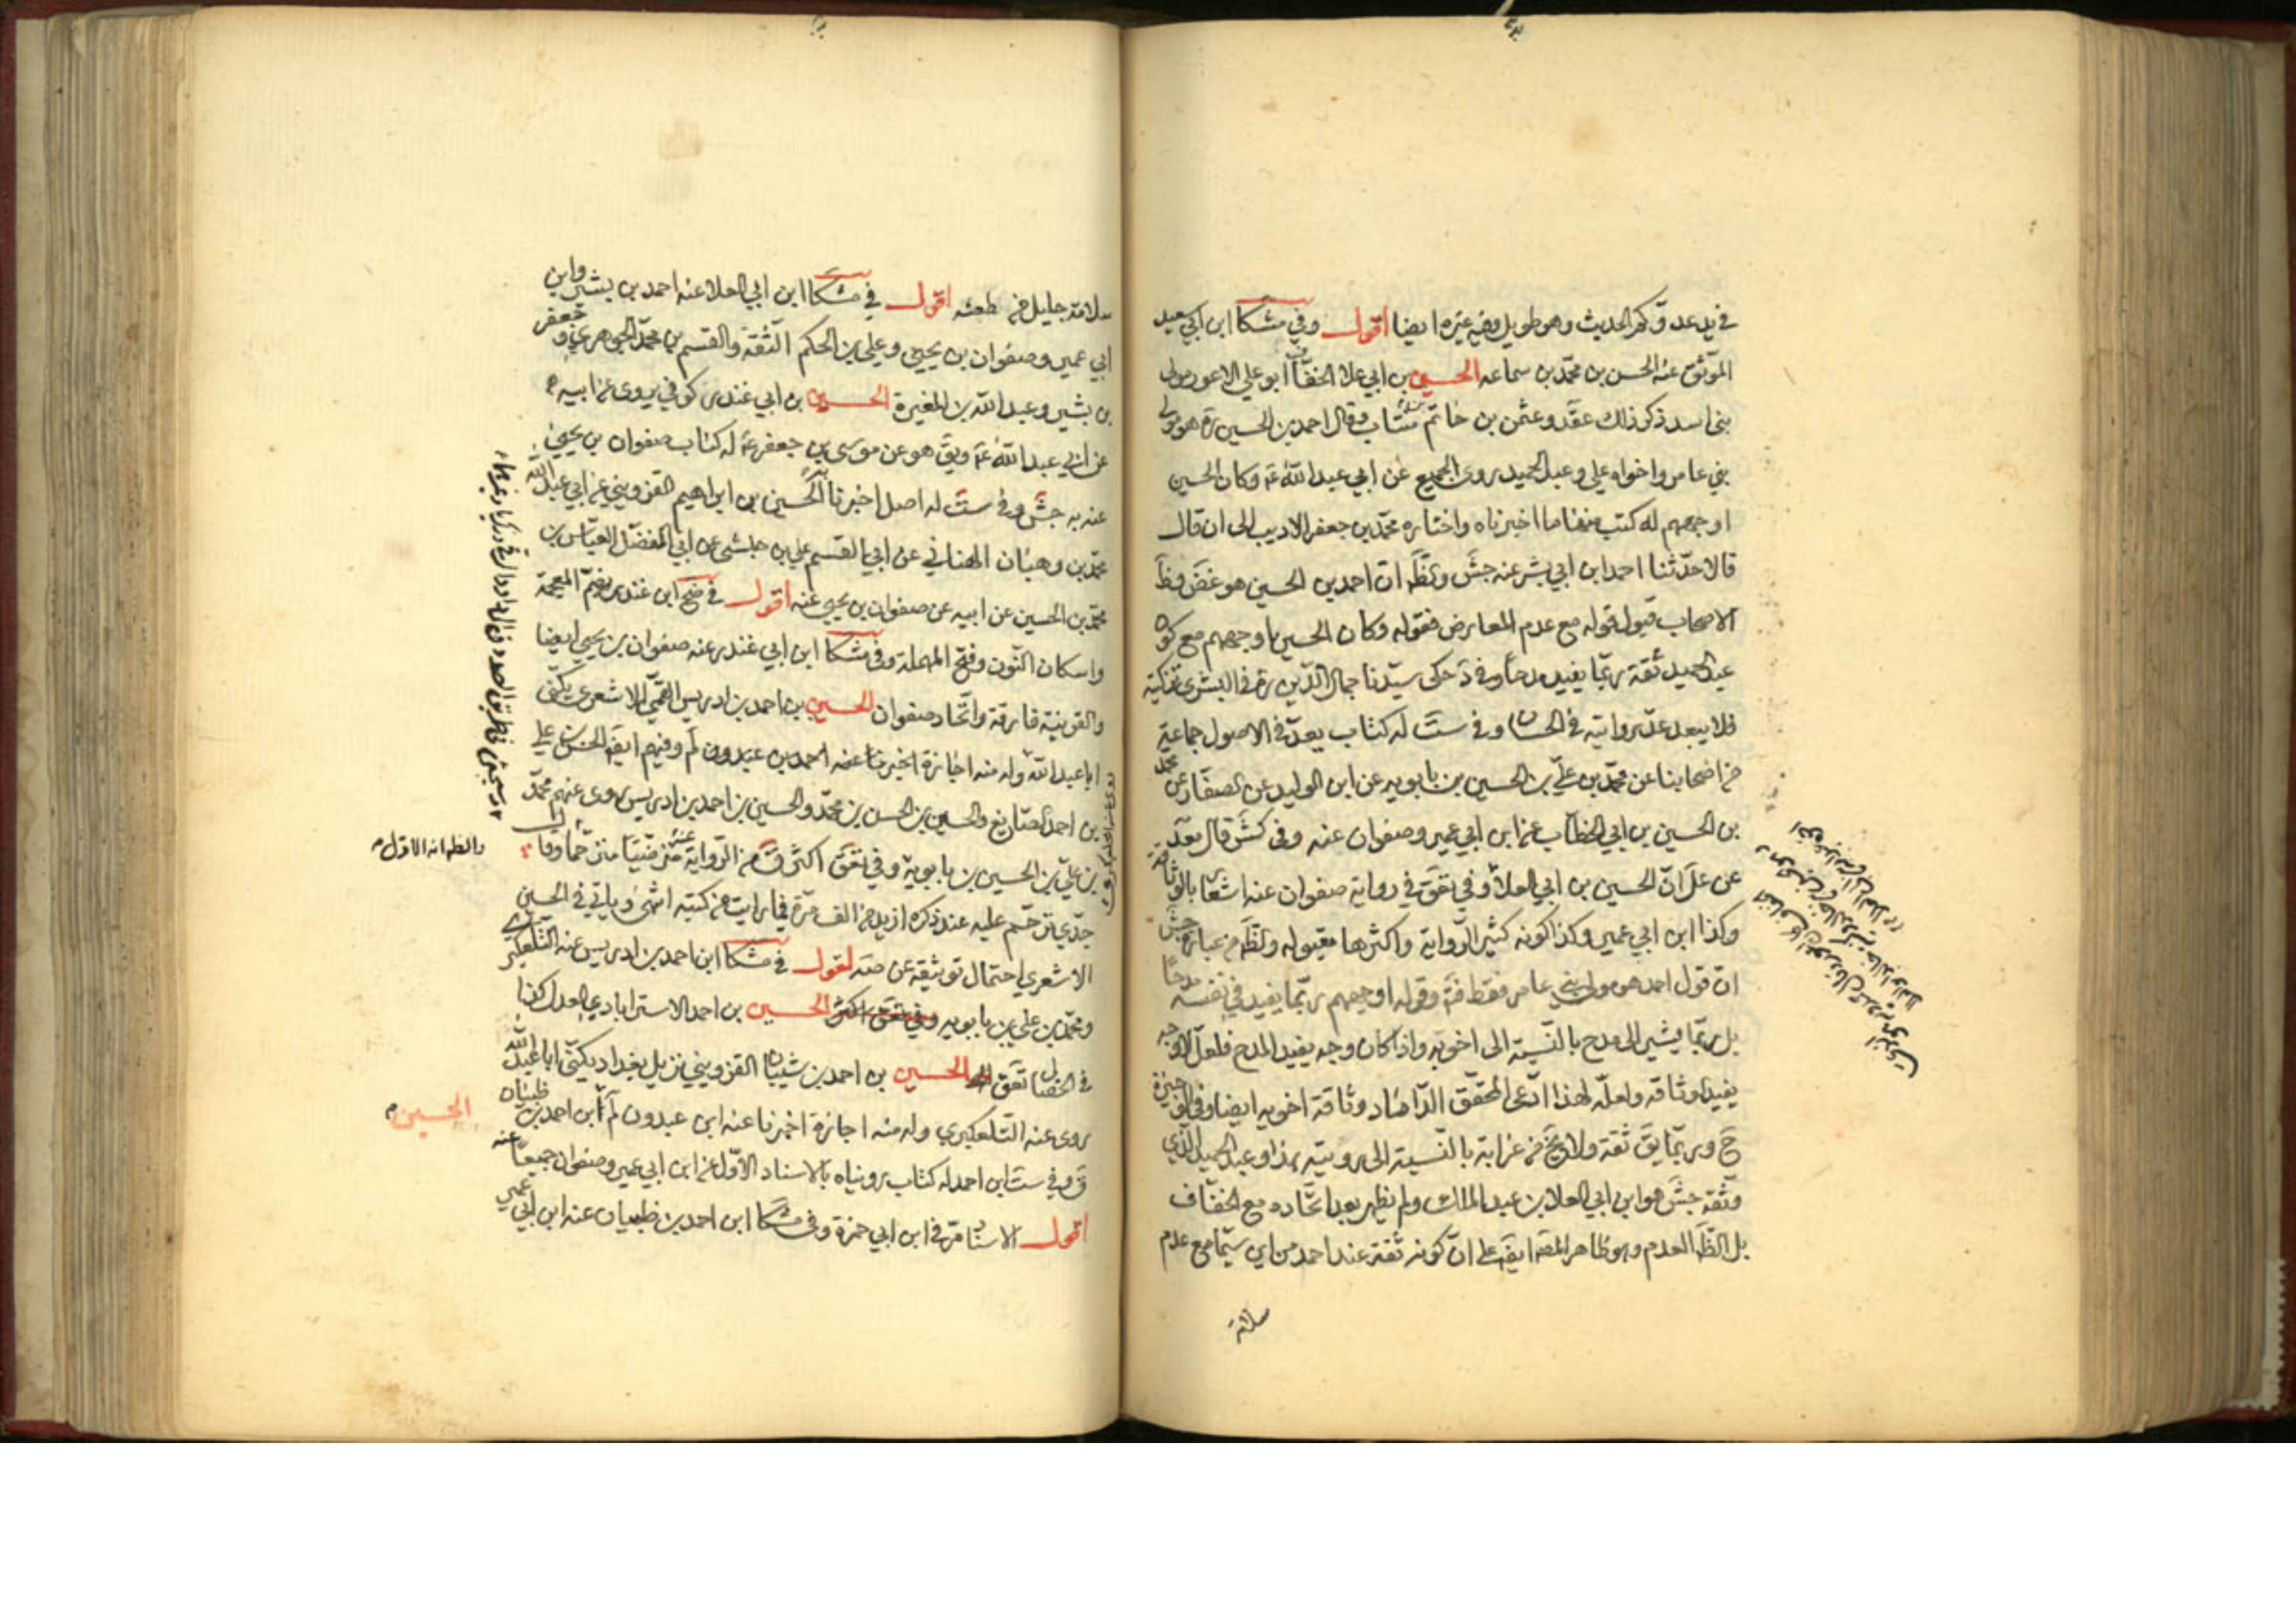 في يد عدوّكم الحديث وهو طويل وفيه غيره ايضا اقول وفي مشكا ابن ابي سعيد
الموثق عنه الحسن بن محمد بن سماعه الحسين بن ابي علا الخفّاف ابو علي الاعور مولى
بني اسد ذكر ذلك عقد وعثمن بن حاتم منتاب وقال احمد بن الحسين ره هو مولى
بني عامر واخواه علي وعبد الحميد روى الجميع عن ابي عبد الله ع وكان الحسين
اوجههم له كتب منها ما اخبرناه واختاره محمد بن جعفر الاديب الى ان قال
قالا حدّثنا احمد ابن ابي بشر عنه جش ويظ ان احمد بن الحسين هو غض وظ
الاصحاب قبول قوله مع عدم المعارض فقوله وكان الحسين اوجههم مع كون
عبد الحميد ثقة ربّما يفيد مدحا وفي د حكى سيّدنا جمال الدّين ره في البشرى تزكيته
فلا يبعد عدّ روايته في الحسان وفي ست له كتاب يعدّ في الاصول جماعة
من اصحابنا عن محمد بن علي بن الحسين بن بابويه عن ابن الوليد عن الصفّار عن محمد
بن الحسين بن ابي الخطّاب عن ابن ابي عمير وصفوان عنه وفي كش قال
عن علا انّ الحسين بن ابي العلا وفي تعق في رواية صفوان عنه اشعارا بالوثاقة
وكذا ابن ابي عمير وكذا كونه كثير الرواية واكثرها مقبوله ويظ من عبارة جش
انّ قول احمد هو مولى بني عامر فقط وقوله اوجههم ربّما يفيد في نفسه مدحا
بل ربّما يشير الى مدح بالنّسبة الى اخويه واذا كان وجه يفيد المدح فلعل الاوجه
يفيد وثاقة ولعلّه لهذا ادّعى المحقّق الدّاماد وثاقة اخويه ايضا وفي الوجيزة
ح وربّما يق ثقة ولا يخ من غرابة بالنّسبة الى رويته هذا وعبد الحميد الّذي
وثّقه جش هو ابن ابي العلا بن عبد الملك ولم يظهر بعد اتّحاده مع الخفّاف
بل الظّ العدم وهو ظاهر المص ايض على انّ كونه ثقة عند احمد من اين سيّما مع عدم
سلامة
سلامة جليل من طعنه اقول في مشكا ابن ابي العلا عنه احمد بن بشير وابن
ابي عمير وصفوان بن يحيى وعلي بن الحكم الثّقة والقسم بن محمد الجوهري وجعفر
بن بشير وعبد الله بن المغيرة الحسين بن ابي غندر كوفي يروى عن ابيه
عن ابي عبد الله ع ويق هو عن موسى بن جعفر ع له كتاب صفوان بن يحيى
عنه به جش وفي ست له اصل اخبرنا الحسين بن ابراهيم القزويني عن ابي عبد الله
محمد بن وهبان الهنائي عن ابي القسم علي بن حبشي عن ابي المفضّل العبّاس بن
محمد بن الحسين عن ابيه عن صفوان بن يحيى عنه اقول في ضح ابن غندر بضمّ المعجمة
واسكان النّون وفتح المهملة وفي مشكا ابن ابي غندر عنه صفوان بن يحيى ايضا
والقرينة فارقة واتّحاد صفوان الحسين بن احمد بن ادريس القمّي الاشعري يكنى
ابا عبد الله وله منه اجازة اخبرنا عنه احمد بن عبدون لم وفيهم ايض الحسن بن علي
بن احمد الصايغ والحسين بن الحسن بن محمد والحسين بن احمد بن ادريس روى عنهم محمد
بن علي بن الحسين بن بابويه وفي تعق اكثر ق من الرواية عنه مترضيا مترحّما وقال
جدّي ترحّم عليه عند ذكره ازيد من الف مرّة فيما رايت من كتبه انتهى وياتي في الحسين
الاشعري احتمال توثيقه عن صه اقول في مشكا ابن احمد بن ادريس عنه التلعكبري
ومحمد بن علي بن بابويه وفي تعق اكثر الحسين بن احمد الاسترابادي العدل كذا
في الخصال تعق الحسين بن احمد بن شيبان القزويني نزيل بغداد يكنّى ابا عبد الله
روى عنه التّلعكبري وله منه اجازة اخبرنا عنه ابن عبدون لم ابن احمد بن ظبيان
ق وفي ست ابن احمد له كتاب رويناه بالاسناد الاوّل عن ابن ابي عمير وصفوان جميعا عنه
اقول الاسناد مرّ في ابن ابي حمزة وفي مشكا ابن احمد بن ظبيان عنه ابن ابي عمير
والظ انه الاول
الحسين